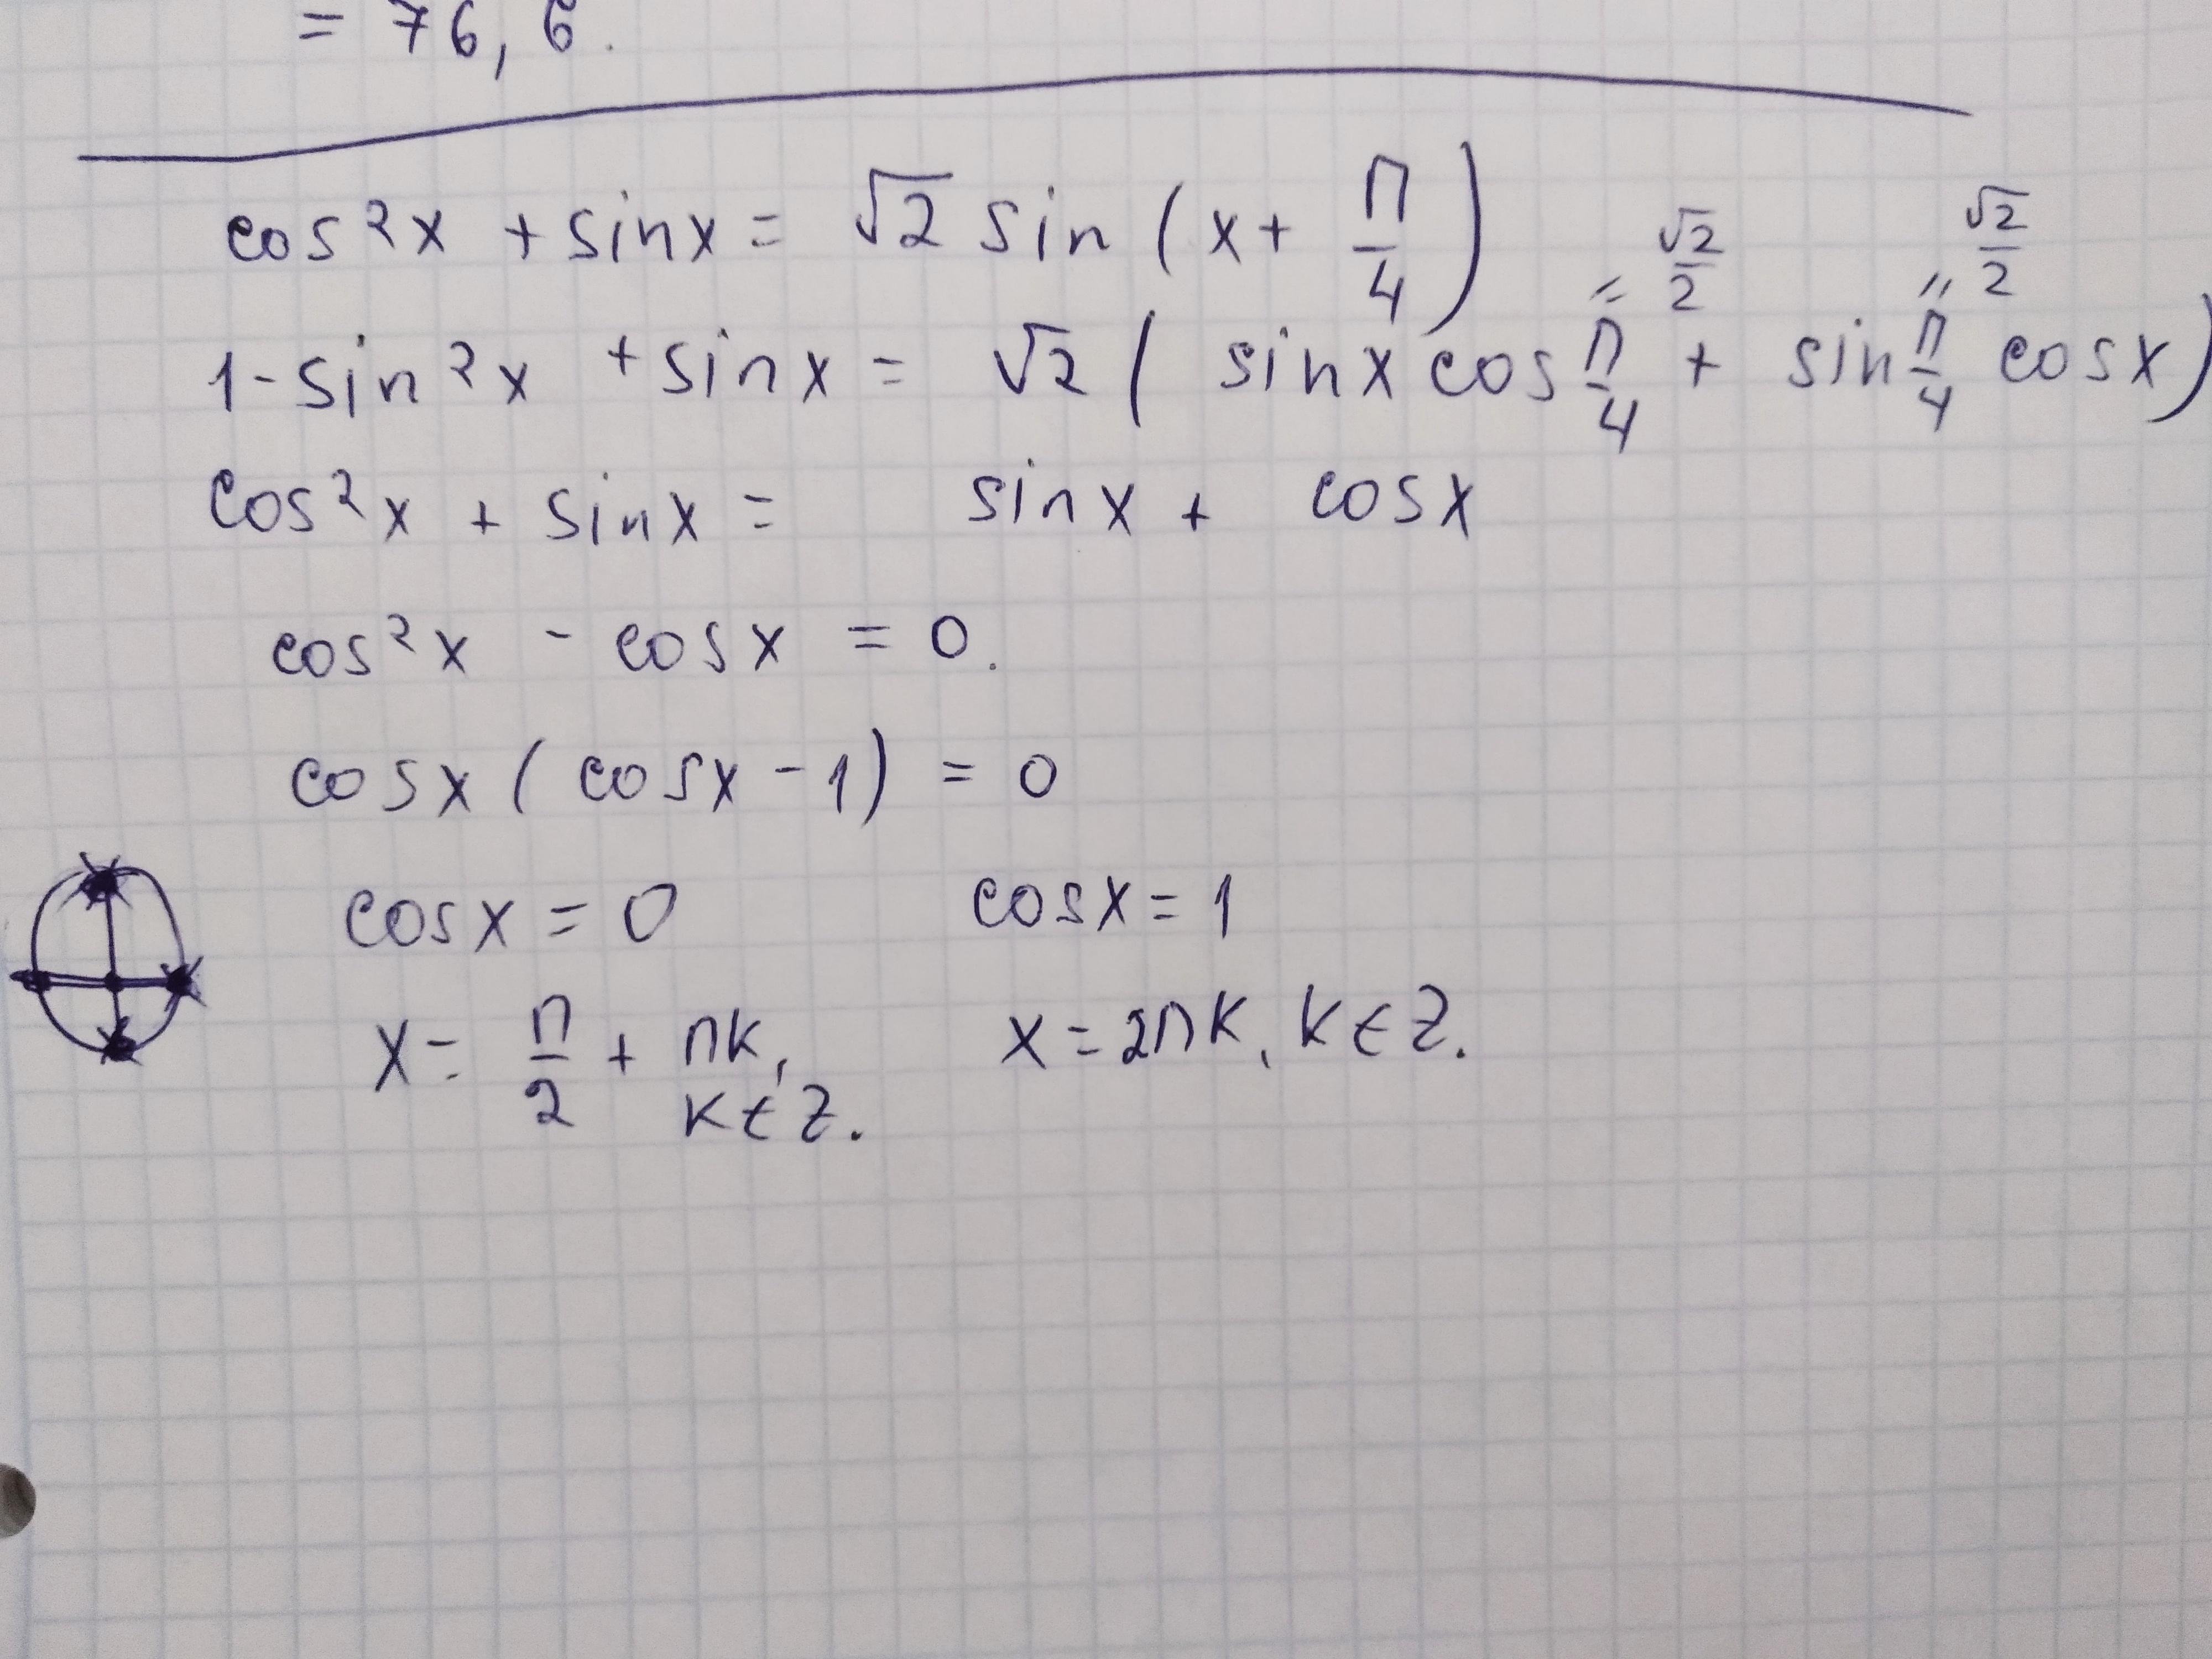 = 76,6.
cos²x + sinx = √2 sin (x + π/4)
√2/2 √2/2
= =
1 - sin²x + sinx = √2 ( sinx cos π/4 + sin π/4 cosx)
cos²x + sinx = sinx + cosx
cos²x - cosx = 0.
cosx ( cosx - 1) = 0
cosx = 0 cosx = 1
x = π/2 + πk, x = 2πk, k ∈ Z.
k ∈ Z.